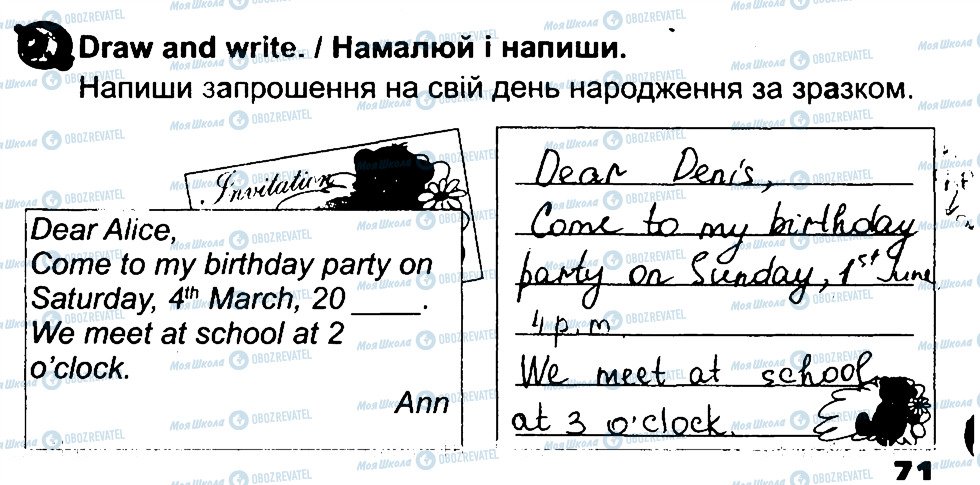 Draw and write. / Намалюй і напиши.
Напиши запрошення на свій день народження за зразком.
Invitation
Dear Alice,
Come to my birthday party on
Saturday, 4th March, 20 ____.
We meet at school at 2
o'clock.
Ann
Dear Denis,
Come to my birthday
party on Sunday, 1st June
4 p.m.
We meet at school
at 3 o'clock.
71